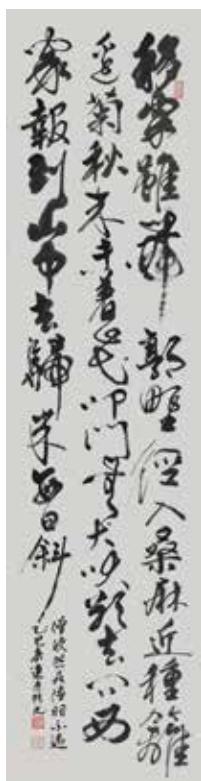 移家雖帶郭野徑入桑麻近種籬
邊菊秋来未着花叩門無犬吠欲去問西
家報到山中去歸来每日斜
僧皎然尋陸羽不遇
乙巳春